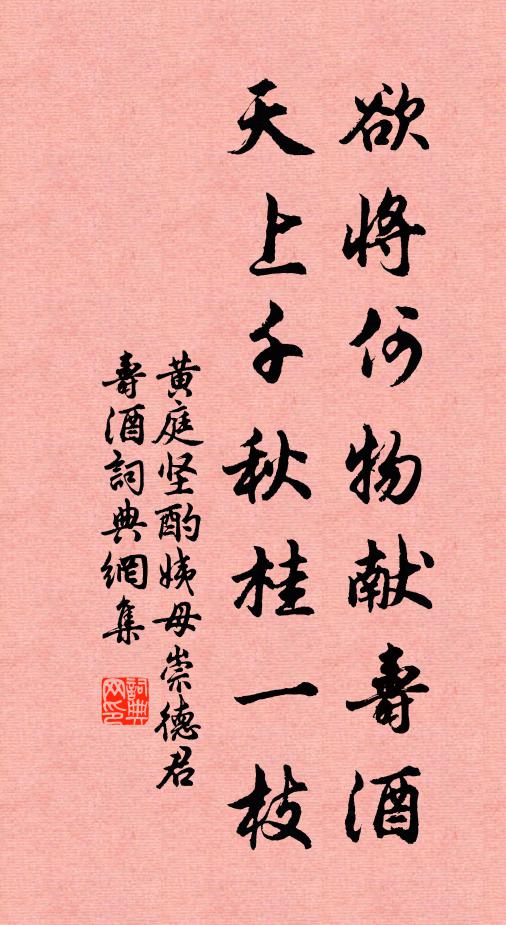 欲将何物献壽酒
天上千秋桂一枝
黄庭坚酌姨母崇德君
壽酒詞典網集
詞典
网印